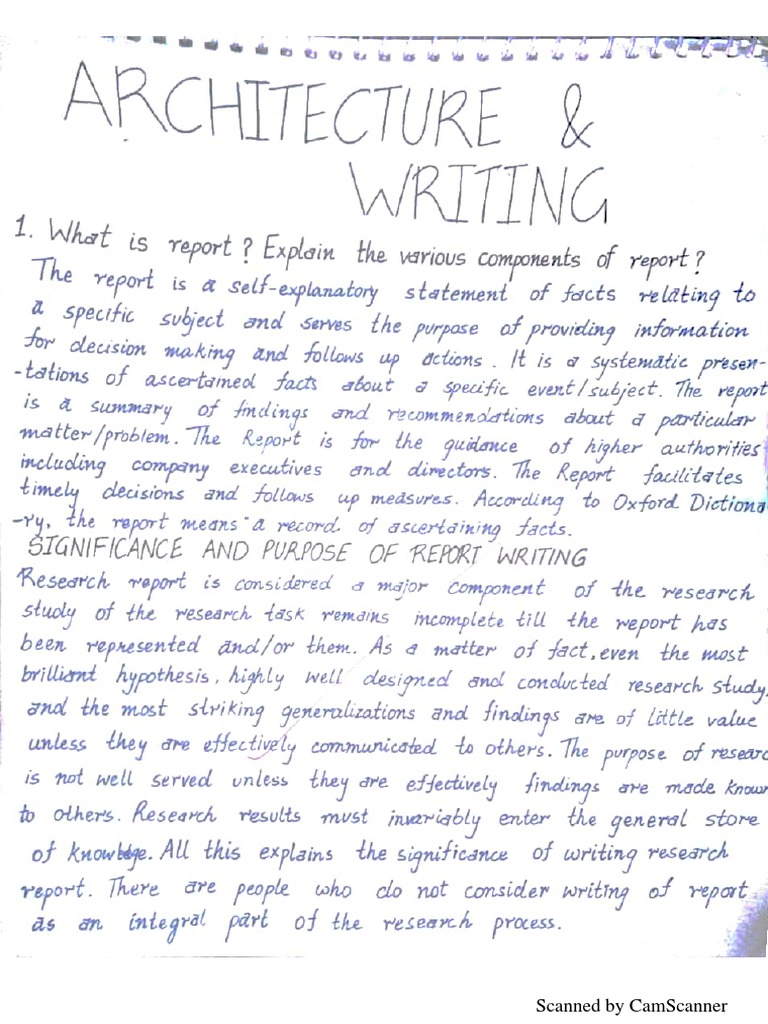 ARCHITECTURE &
WRITING
1. What is report? Explain the various components of report?
The report is a self-explanatory statement of facts relating to
a specific subject and serves the purpose of providing information
for decision making and follows up actions. It is a systematic presen-
-tations of ascertained facts about a specific event/subject. The report
is a summary of findings and recommendations about a particular
matter/problem. The Report is for the guidance of higher authorities
including company executives and directors. The Report facilitates
timely decisions and follows up measures. According to Oxford Dictiona
-ry, the report means "a record of ascertaining facts.
SIGNIFICANCE AND PURPOSE OF REPORT WRITING
Research report is considered a major component of the research
study of the research task remains incomplete till the report has
been represented and/or them. As a matter of fact, even the most
brilliant hypothesis, highly well designed and conducted research study,
and the most striking generalizations and findings are of little value
unless they are effectively communicated to others. The purpose of researc
is not well served unless they are effectively findings are made know
to others. Research results must invariably enter the general store
of knowledge. All this explains the significance of writing research
report. There are people who do not consider writing of report
as an integral part of the research process.
Scanned by CamScanner